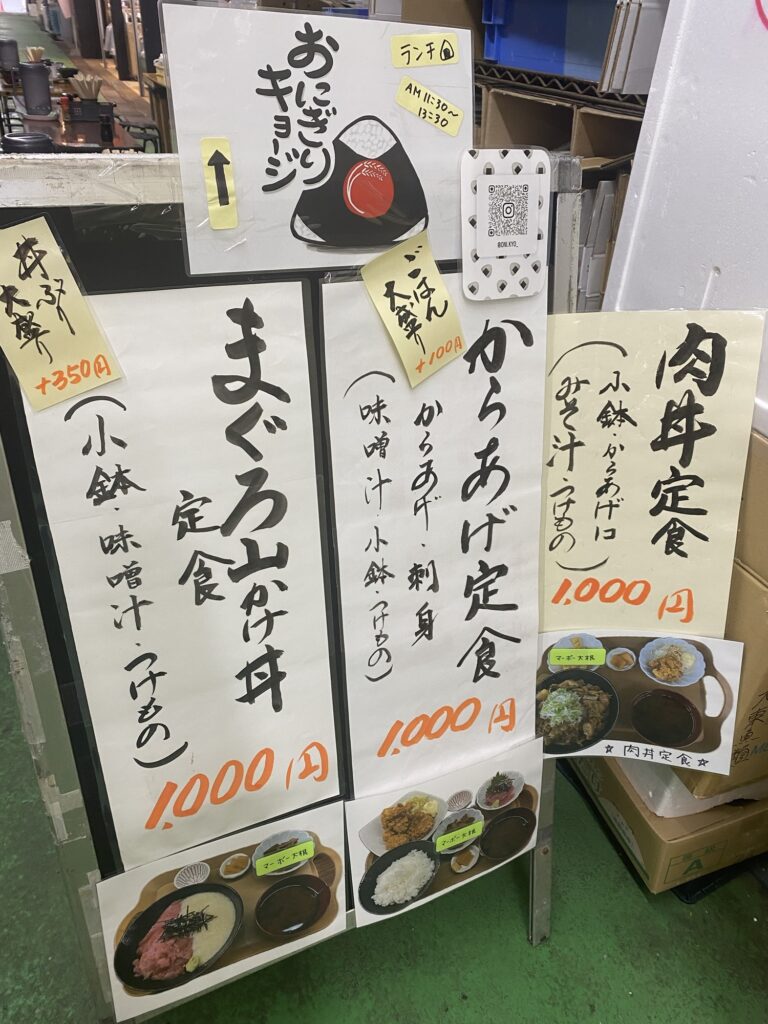 おにぎり
キョージ
ランチ
AM 11:30～
13:30
@ONI.KYO_
丼ぶり
大盛り
+350円
まぐろ山かけ丼
定食
(小鉢・味噌汁・つけもの)
1,000円
マーボー大根
ごはん
大盛り
+100円
からあげ定食
(からあげ・刺身
味噌汁・小鉢・つけもの)
1,000円
マーボー大根
肉丼定食
(小鉢・からあげ1コ
みそ汁・つけもの)
1,000円
マーボー大根
☆肉丼定食☆
A